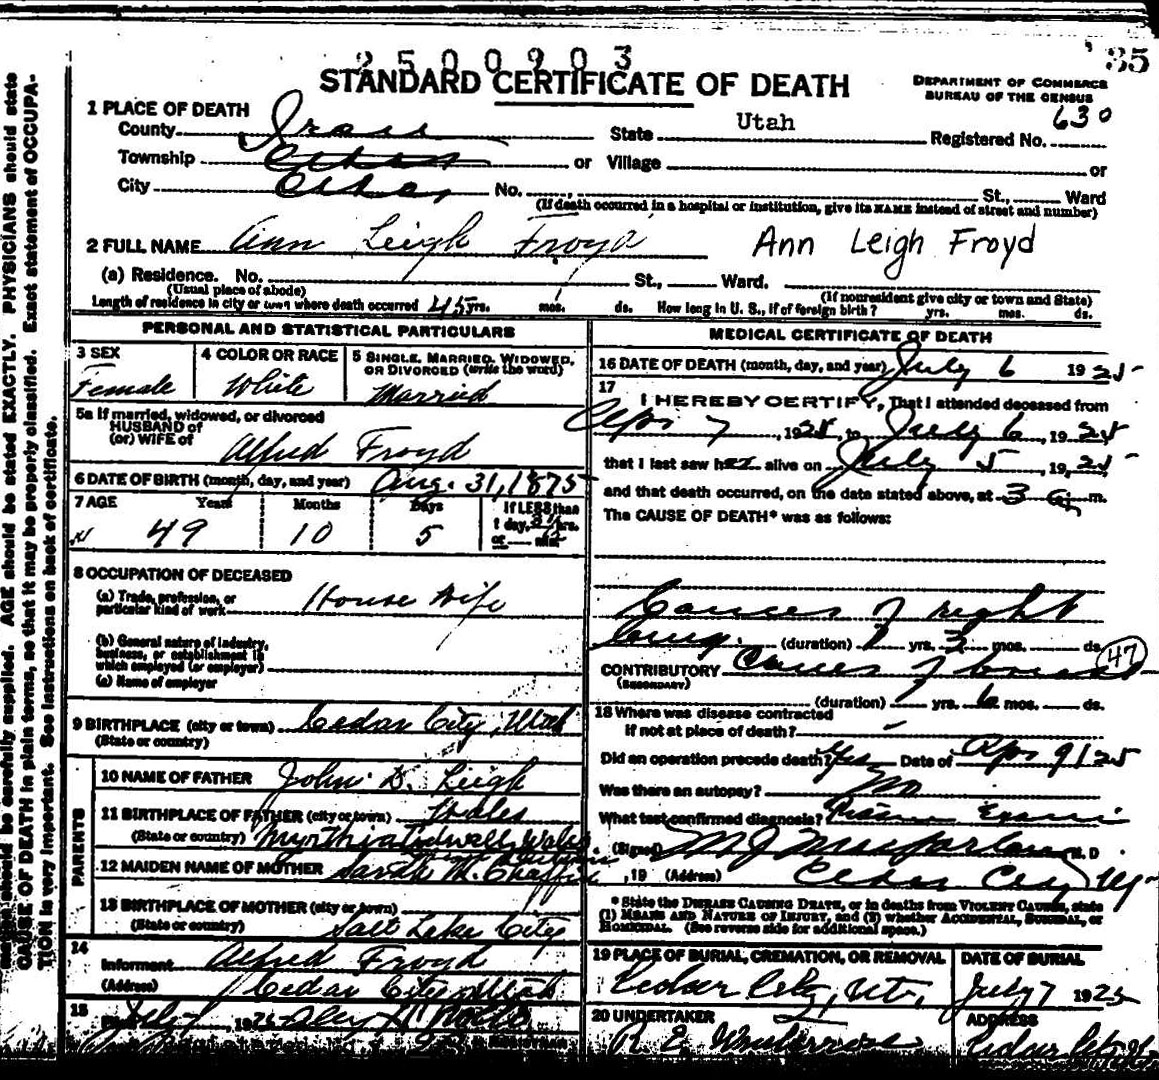 2500903
'35
STANDARD CERTIFICATE OF DEATH
DEPARTMENT OF COMMERCE
BUREAU OF THE CENSUS
1 PLACE OF DEATH
County Iron State Utah Registered No. 630
Township or Village or
City Cedar No. St., Ward
(If death occurred in a hospital or institution, give its NAME instead of street and number)
2 FULL NAME Ann Leigh Froyd Ann Leigh Froyd
(a) Residence. No. St., Ward.
(Usual place of abode) (If nonresident give city or town and State)
Length of residence in city or town where death occurred 45 yrs. mos. ds. How long in U. S., if of foreign birth? yrs. mos. ds.
PERSONAL AND STATISTICAL PARTICULARS
3 SEX 4 COLOR OR RACE 5 SINGLE, MARRIED, WIDOWED,
OR DIVORCED (write the word)
Female White Married
5a If married, widowed, or divorced
HUSBAND of
(or) WIFE of Alfred Froyd
6 DATE OF BIRTH (month, day, and year) Aug. 31, 1875
7 AGE Years Months Days If LESS than
1 day, hrs.
49 10 5 or min.
8 OCCUPATION OF DECEASED
(a) Trade, profession, or
particular kind of work House Wife
(b) General nature of industry,
business, or establishment in
which employed (or employer)
(c) Name of employer
9 BIRTHPLACE (city or town) Cedar City, Utah
(State or country)
PARENTS
10 NAME OF FATHER John D. Leigh
11 BIRTHPLACE OF FATHER (city or town) Wales
(State or country) Wales
12 MAIDEN NAME OF MOTHER Sarah M. Chaffin
13 BIRTHPLACE OF MOTHER (city or town)
(State or country) Salt Lake City
14
Informant Alfred Froyd
(Address) Cedar City Utah
15
July 1925
REGISTRAR
MEDICAL CERTIFICATE OF DEATH
16 DATE OF DEATH (month, day, and year) July 6 1925
17
I HEREBY CERTIFY, That I attended deceased from
Apr 7, 1925, to July 6, 1925
that I last saw her alive on July 5, 1925
and that death occurred, on the date stated above, at 3 a m.
The CAUSE OF DEATH* was as follows:
Cancer of right
Lung. (duration) yrs. 3 mos. ds.
47
CONTRIBUTORY Cancer of breast
(SECONDARY)
(duration) yrs. 6 mos. ds.
18 Where was disease contracted
if not at place of death? -
Did an operation precede death? Yes Date of Apr 9/25
Was there an autopsy? No
What test confirmed diagnosis?
(Signed) M J Macfarlane M. D.
, 19 (Address) Cedar City Ut
* State the DISEASE CAUSING DEATH, or in deaths from VIOLENT CAUSES, state
(1) MEANS AND NATURE OF INJURY, and (2) whether ACCIDENTAL, SUICIDAL, or
HOMICIDAL. (See reverse side for additional space.)
19 PLACE OF BURIAL, CREMATION, OR REMOVAL DATE OF BURIAL
Cedar City, Ut. July 7 1925
20 UNDERTAKER ADDRESS
R. E. Cedar City Ut
should be carefully supplied. AGE should be stated EXACTLY. PHYSICIANS should state
CAUSE OF DEATH in plain terms, so that it may be properly classified. Exact statement of OCCUPA-
TION is very important. See instructions on back of certificate.